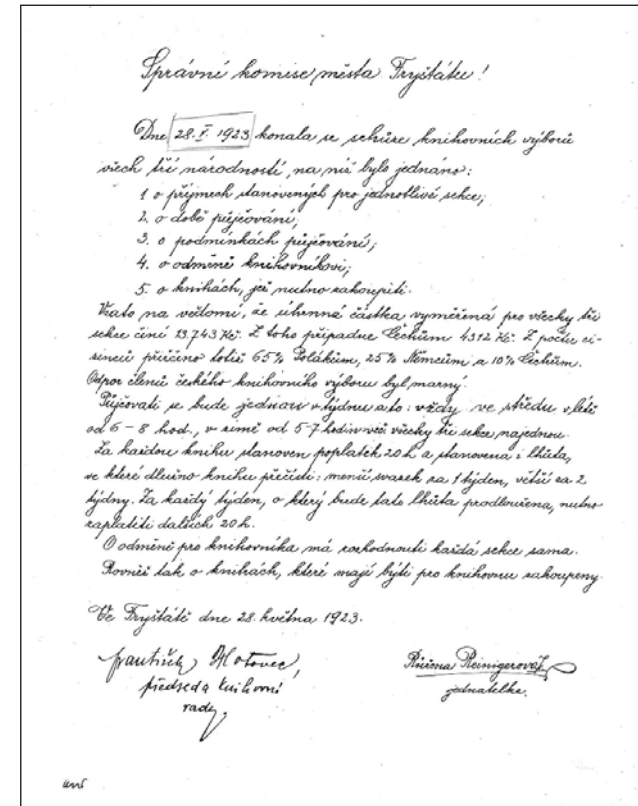 Správní komise města Fryštátu!
Dne 28. V. 1923 konala se schůze knihovních výborů
všech tří národností, na níž bylo jednáno:
1 o příjmech stanovených pro jednotlivé sekce;
2. o době půjčování;
3. o podmínkách půjčování;
4. o odměně knihovníkovi;
5. o knihách, jež nutno zakoupiti.
Vzato na vědomí, že úhrnná částka vyměřená pro všecky tři
sekce činí 13.743 Kč. Z toho připadne Čechům 4312 Kč. Z počtu ci-
zinců přičteno totiž 65% Polákům, 25% Němcům a 10% Čechům.
Odpor členů českého knihovního výboru byl marný.
Půjčovati se bude jednou v týdnu a to: vždy ve středu v létě
od 6 – 8 hod., v zimě od 5-7 hodin več všecky tři sekce najednou.
Za každou knihu stanoven poplatek 20 h a stanovena i lhůta,
ve které dlužno knihu přečísti: menší svazek za 1 týden, větší za 2
týdny. Za každý týden, o který bude tato lhůta prodloužena, nutno
zaplatiti dalších 20 h.
O odměně pro knihovníka má rozhodnouti každá sekce sama.
Rovněž tak o knihách, které mají býti pro knihovnu zakoupeny.
Ve Fryštátě dne 28. května 1923.
František
předseda knihovní
rady.
Růžena Reinigerová
jednatelka.